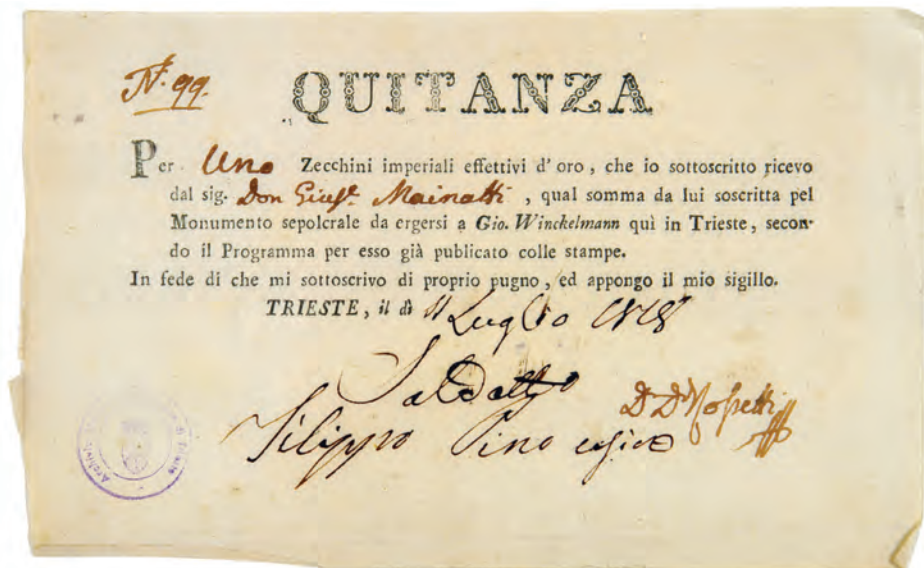 N. 99.
QUITANZA
Per Uno Zecchini imperiali effettivi d'oro, che io sottoscritto ricevo
dal sig. Don Giuse. Mainatti, qual somma da lui soscritta pel
Monumento sepolcrale da ergersi a Gio. Winckelmann quì in Trieste, secon-
do il Programma per esso già publicato colle stampe.
In fede di che mi sottoscrivo di proprio pugno, ed appongo il mio sigillo.
TRIESTE, il dì 11 Luglio
Saldatto
D D Rossetti
Filippo Pino